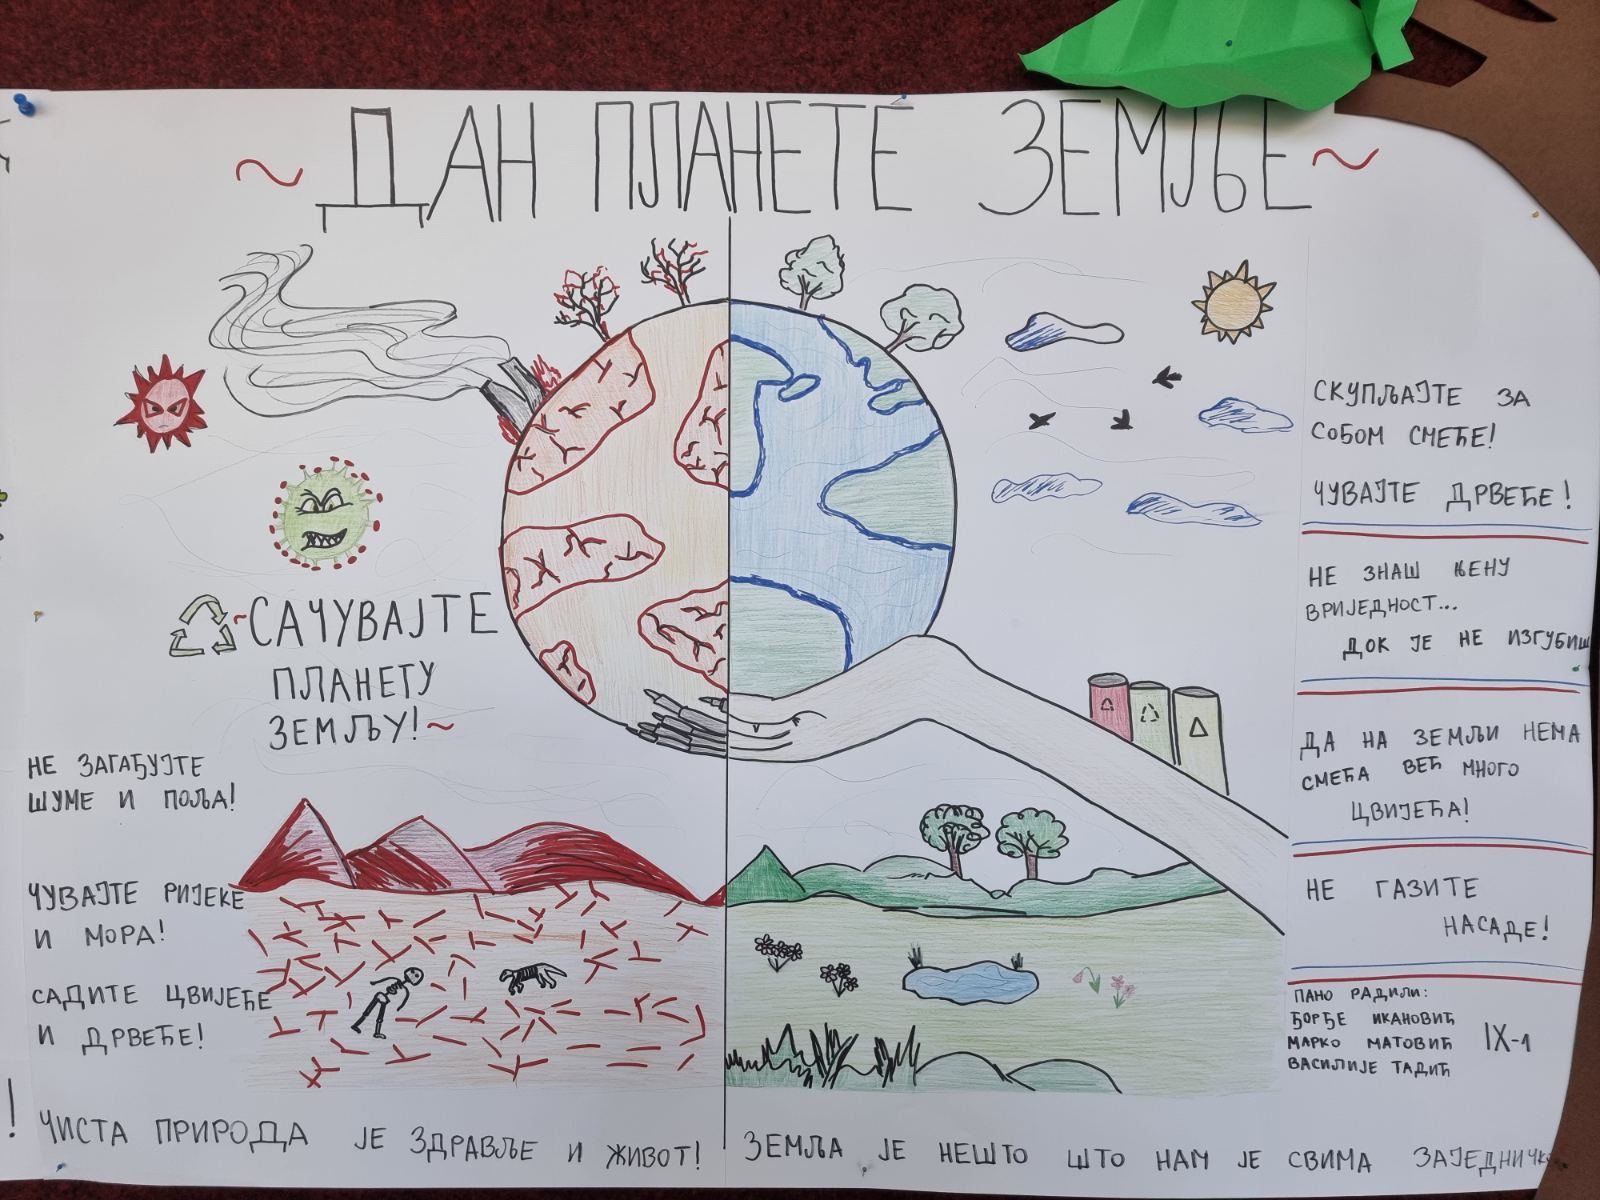 ~ ДАН ПЛАНЕТЕ ЗЕМЉЕ ~
~САЧУВАЈТЕ
ПЛАНЕТУ
ЗЕМЉУ!~
НЕ ЗАГАЂУЈТЕ
ШУМЕ И ПОЉА!
ЧУВАЈТЕ РИЈЕКЕ
И МОРА!
САДИТЕ ЦВИЈЕЋЕ
И ДРВЕЋЕ!
СКУПЉАЈТЕ ЗА
СОБОМ СМЕЋЕ!
ЧУВАЈТЕ ДРВЕЋЕ!
НЕ ЗНАШ ЊЕНУ
ВРИЈЕДНОСТ...
ДОК ЈЕ НЕ ИЗГУБИШ
ДА НА ЗЕМЉИ НЕМА
СМЕЋА ВЕЋ МНОГО
ЦВИЈЕЋА!
НЕ ГАЗИТЕ
НАСАДЕ!
ПАНО РАДИЛИ:
ЂОРЂЕ ИКАНОВИЋ
МАРКО МАТОВИЋ
ВАСИЛИЈЕ ТАДИЋ
IX-1
! ЧИСТА ПРИРОДА ЈЕ ЗДРАВЉЕ И ЖИВОТ!
ЗЕМЉА ЈЕ НЕШТО ШТО НАМ ЈЕ СВИМА ЗАЈЕДНИЧКО